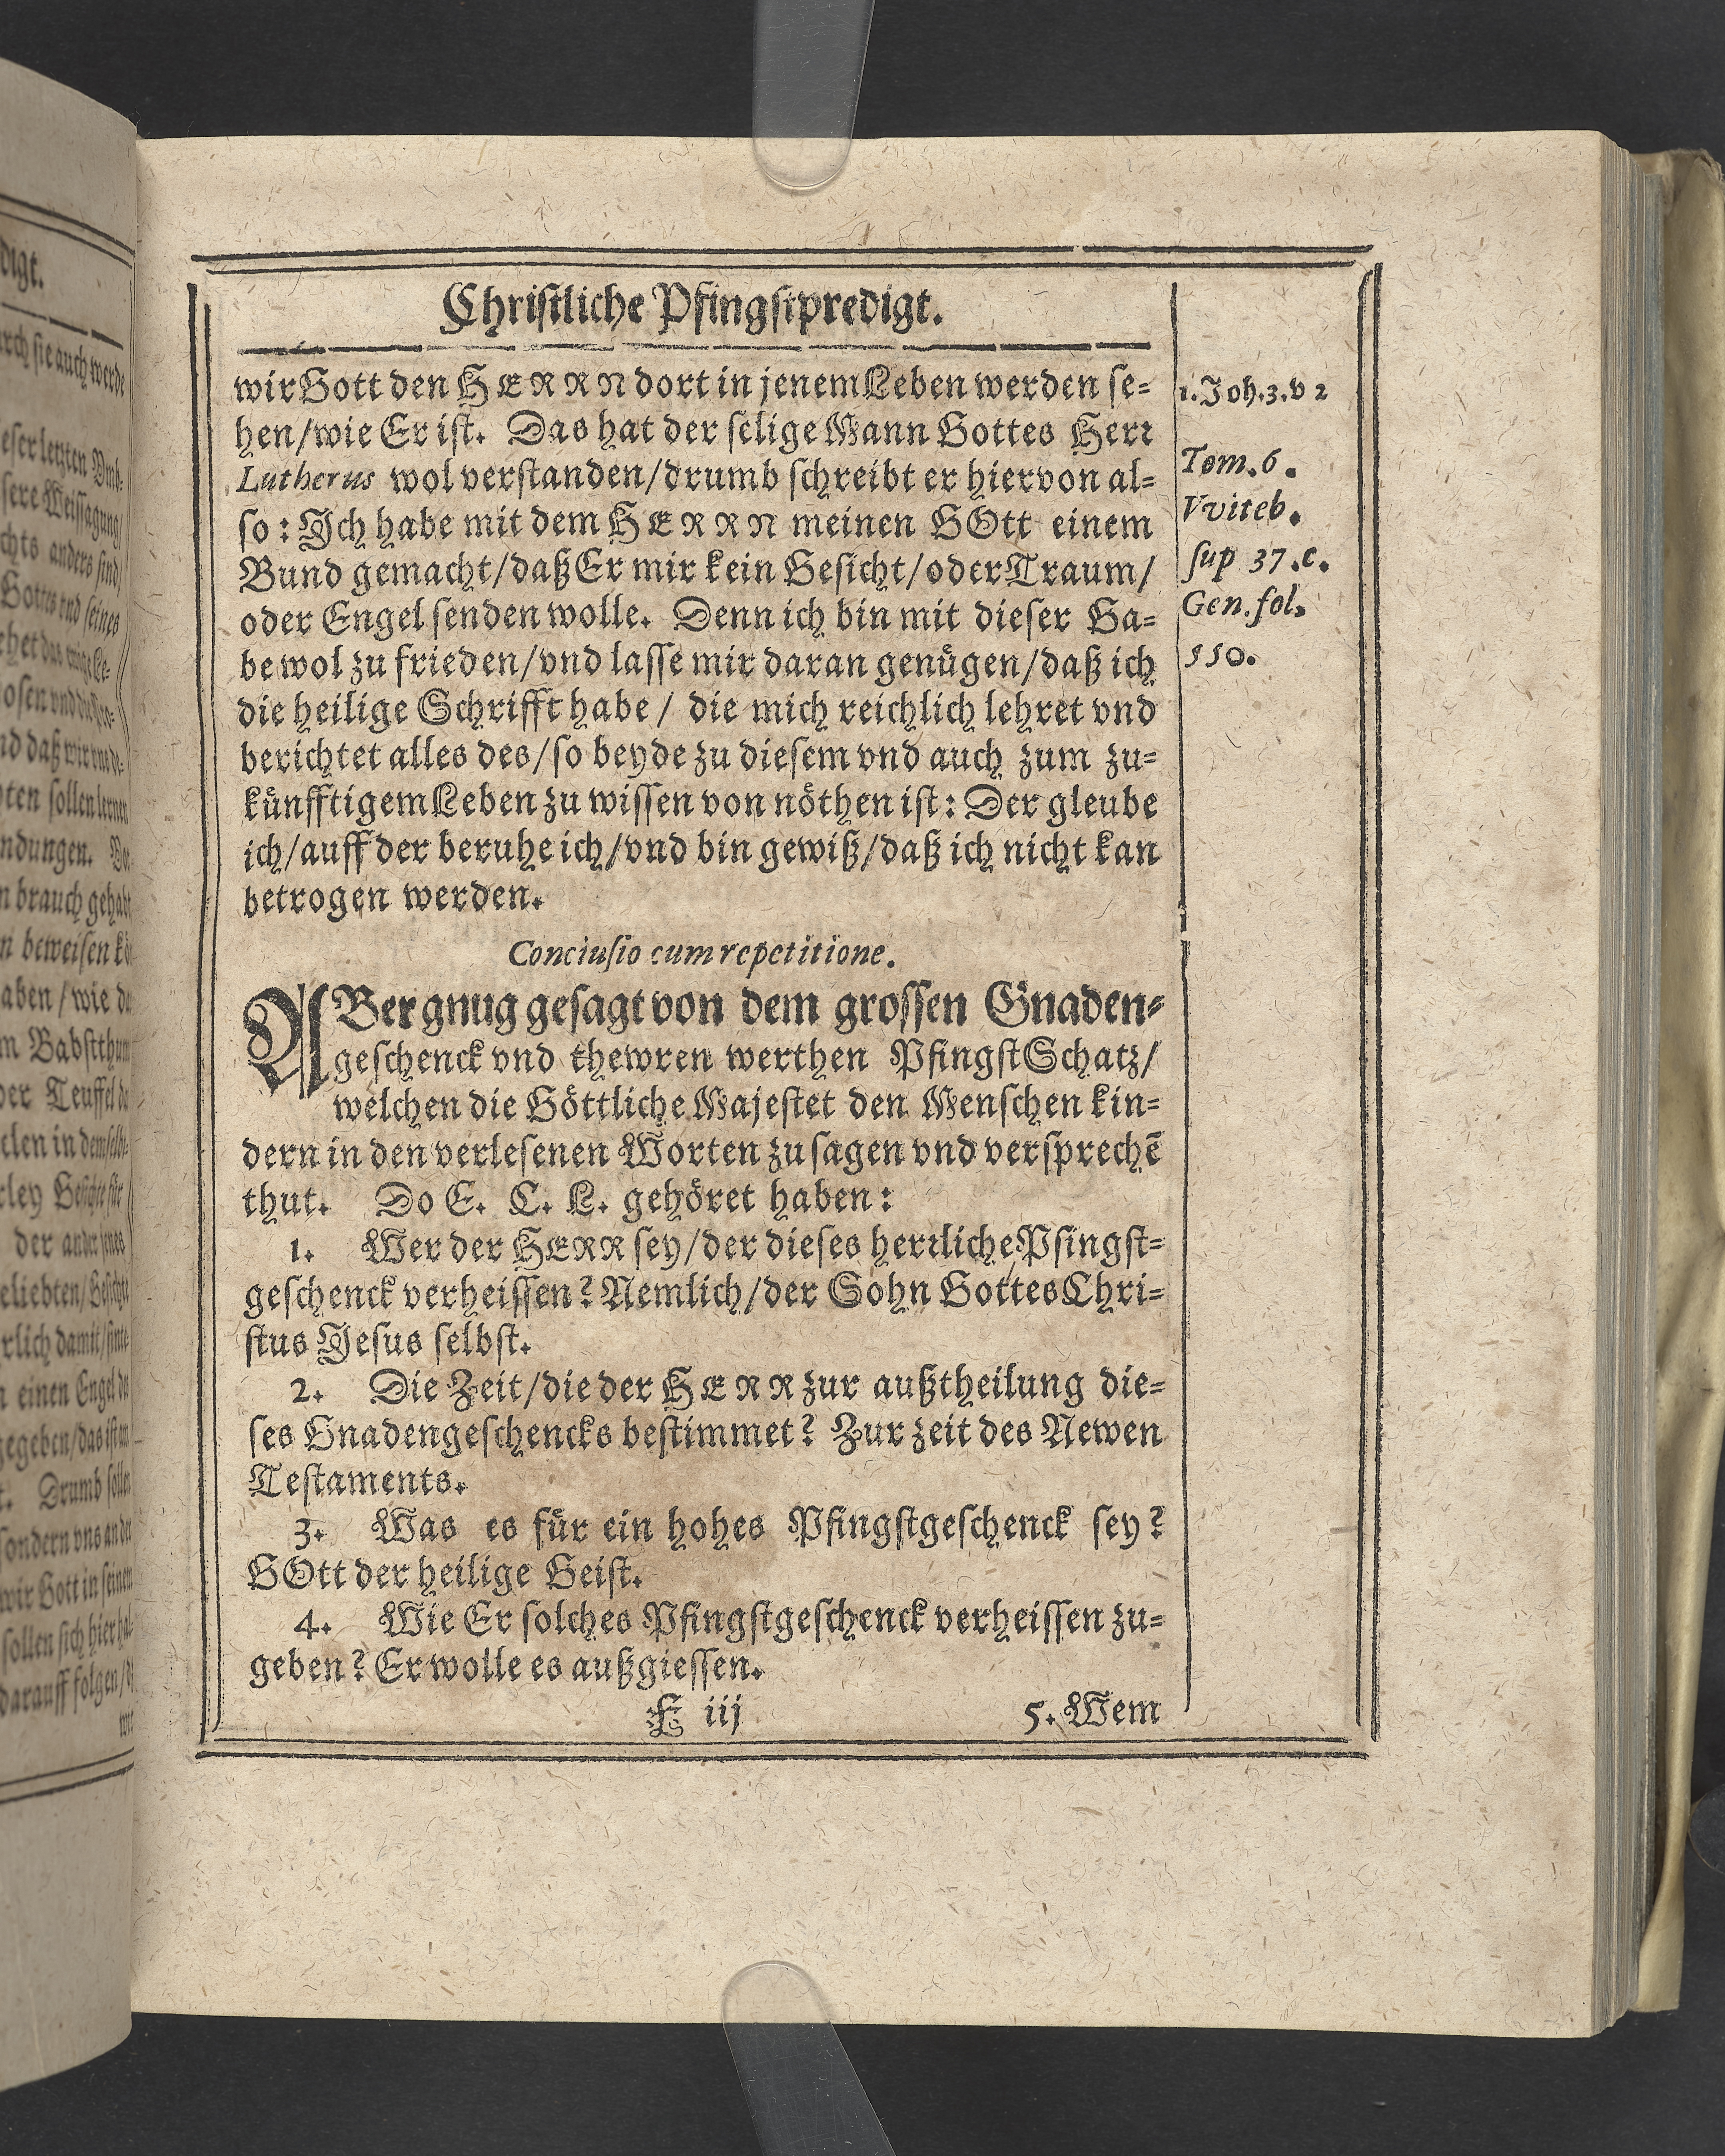 Christliche Pfingstpredigt.
wir Gott den HERRN dort in jenem Leben werden se-
hen/wie Er ist. Das hat der selige Mann Gottes Herr
Lutherus wol verstanden/drumb schreibt er hiervon al-
so: Jch habe mit dem HERRN meinen GOtt einem
Bund gemacht/daß Er mir kein Gesicht/oder Traum/
oder Engel senden wolle. Denn ich bin mit dieser Ga-
be wol zu frieden/vnd lasse mir daran genügen/daß ich
die heilige Schrifft habe/ die mich reichlich lehret vnd
berichtet alles des/so beyde zu diesem vnd auch zum zu-
künfftigem Leben zu wissen von nöthen ist: Der gleube
ich/auff der beruhe ich/vnd bin gewiß/daß ich nicht kan
betrogen werden.
1. Joh. 3. v 2
Tom. 6.
Vviteb.
sup 37. c.
Gen. fol.
550.
Conclusio cum repetitione.
ABer gnug gesagt von dem grossen Gnaden-
geschenck vnd thewren werthen PfingstSchatz/
welchen die Göttliche Majestet den Menschen kin-
dern in den verlesenen Worten zu sagen vnd versprechē
thut. Do E. C. L. gehöret haben:
1. Wer der HERR sey/der dieses herrliche Pfingst-
geschenck verheissen? Nemlich/der Sohn Gottes Chri-
stus Jesus selbst.
2. Die Zeit/die der HERR zur außtheilung die-
ses Gnadengeschencks bestimmet? Zur zeit des Newen
Testaments.
3. Was es für ein hohes Pfingstgeschenck sey?
GOtt der heilige Geist.
4. Wie Er solches Pfingstgeschenck verheissen zu-
geben? Er wolle es außgiessen.
E iij 5. Wem